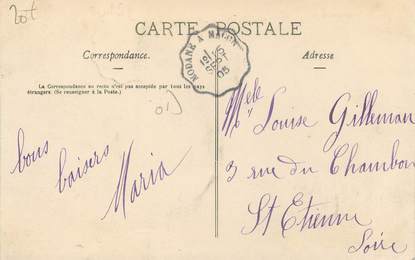 20t
CARTE POSTALE
Correspondance.
Adresse
MODANE A MACON
05
La Correspondance au recto n'est pas acceptée par tous les pays
étrangers. (Se renseigner à la Poste.)
01)
bons
baisers
Maria
Melle Louise Gilleman
3 rue du Chambon
St Etienne
Loire